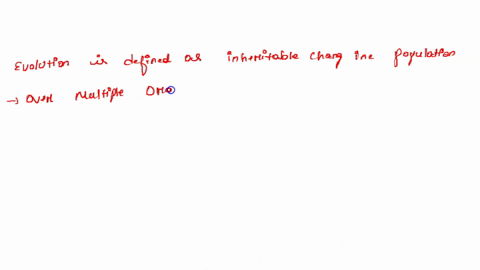 Evolution is defined as inheritable chang ine population
→ Over Multiple